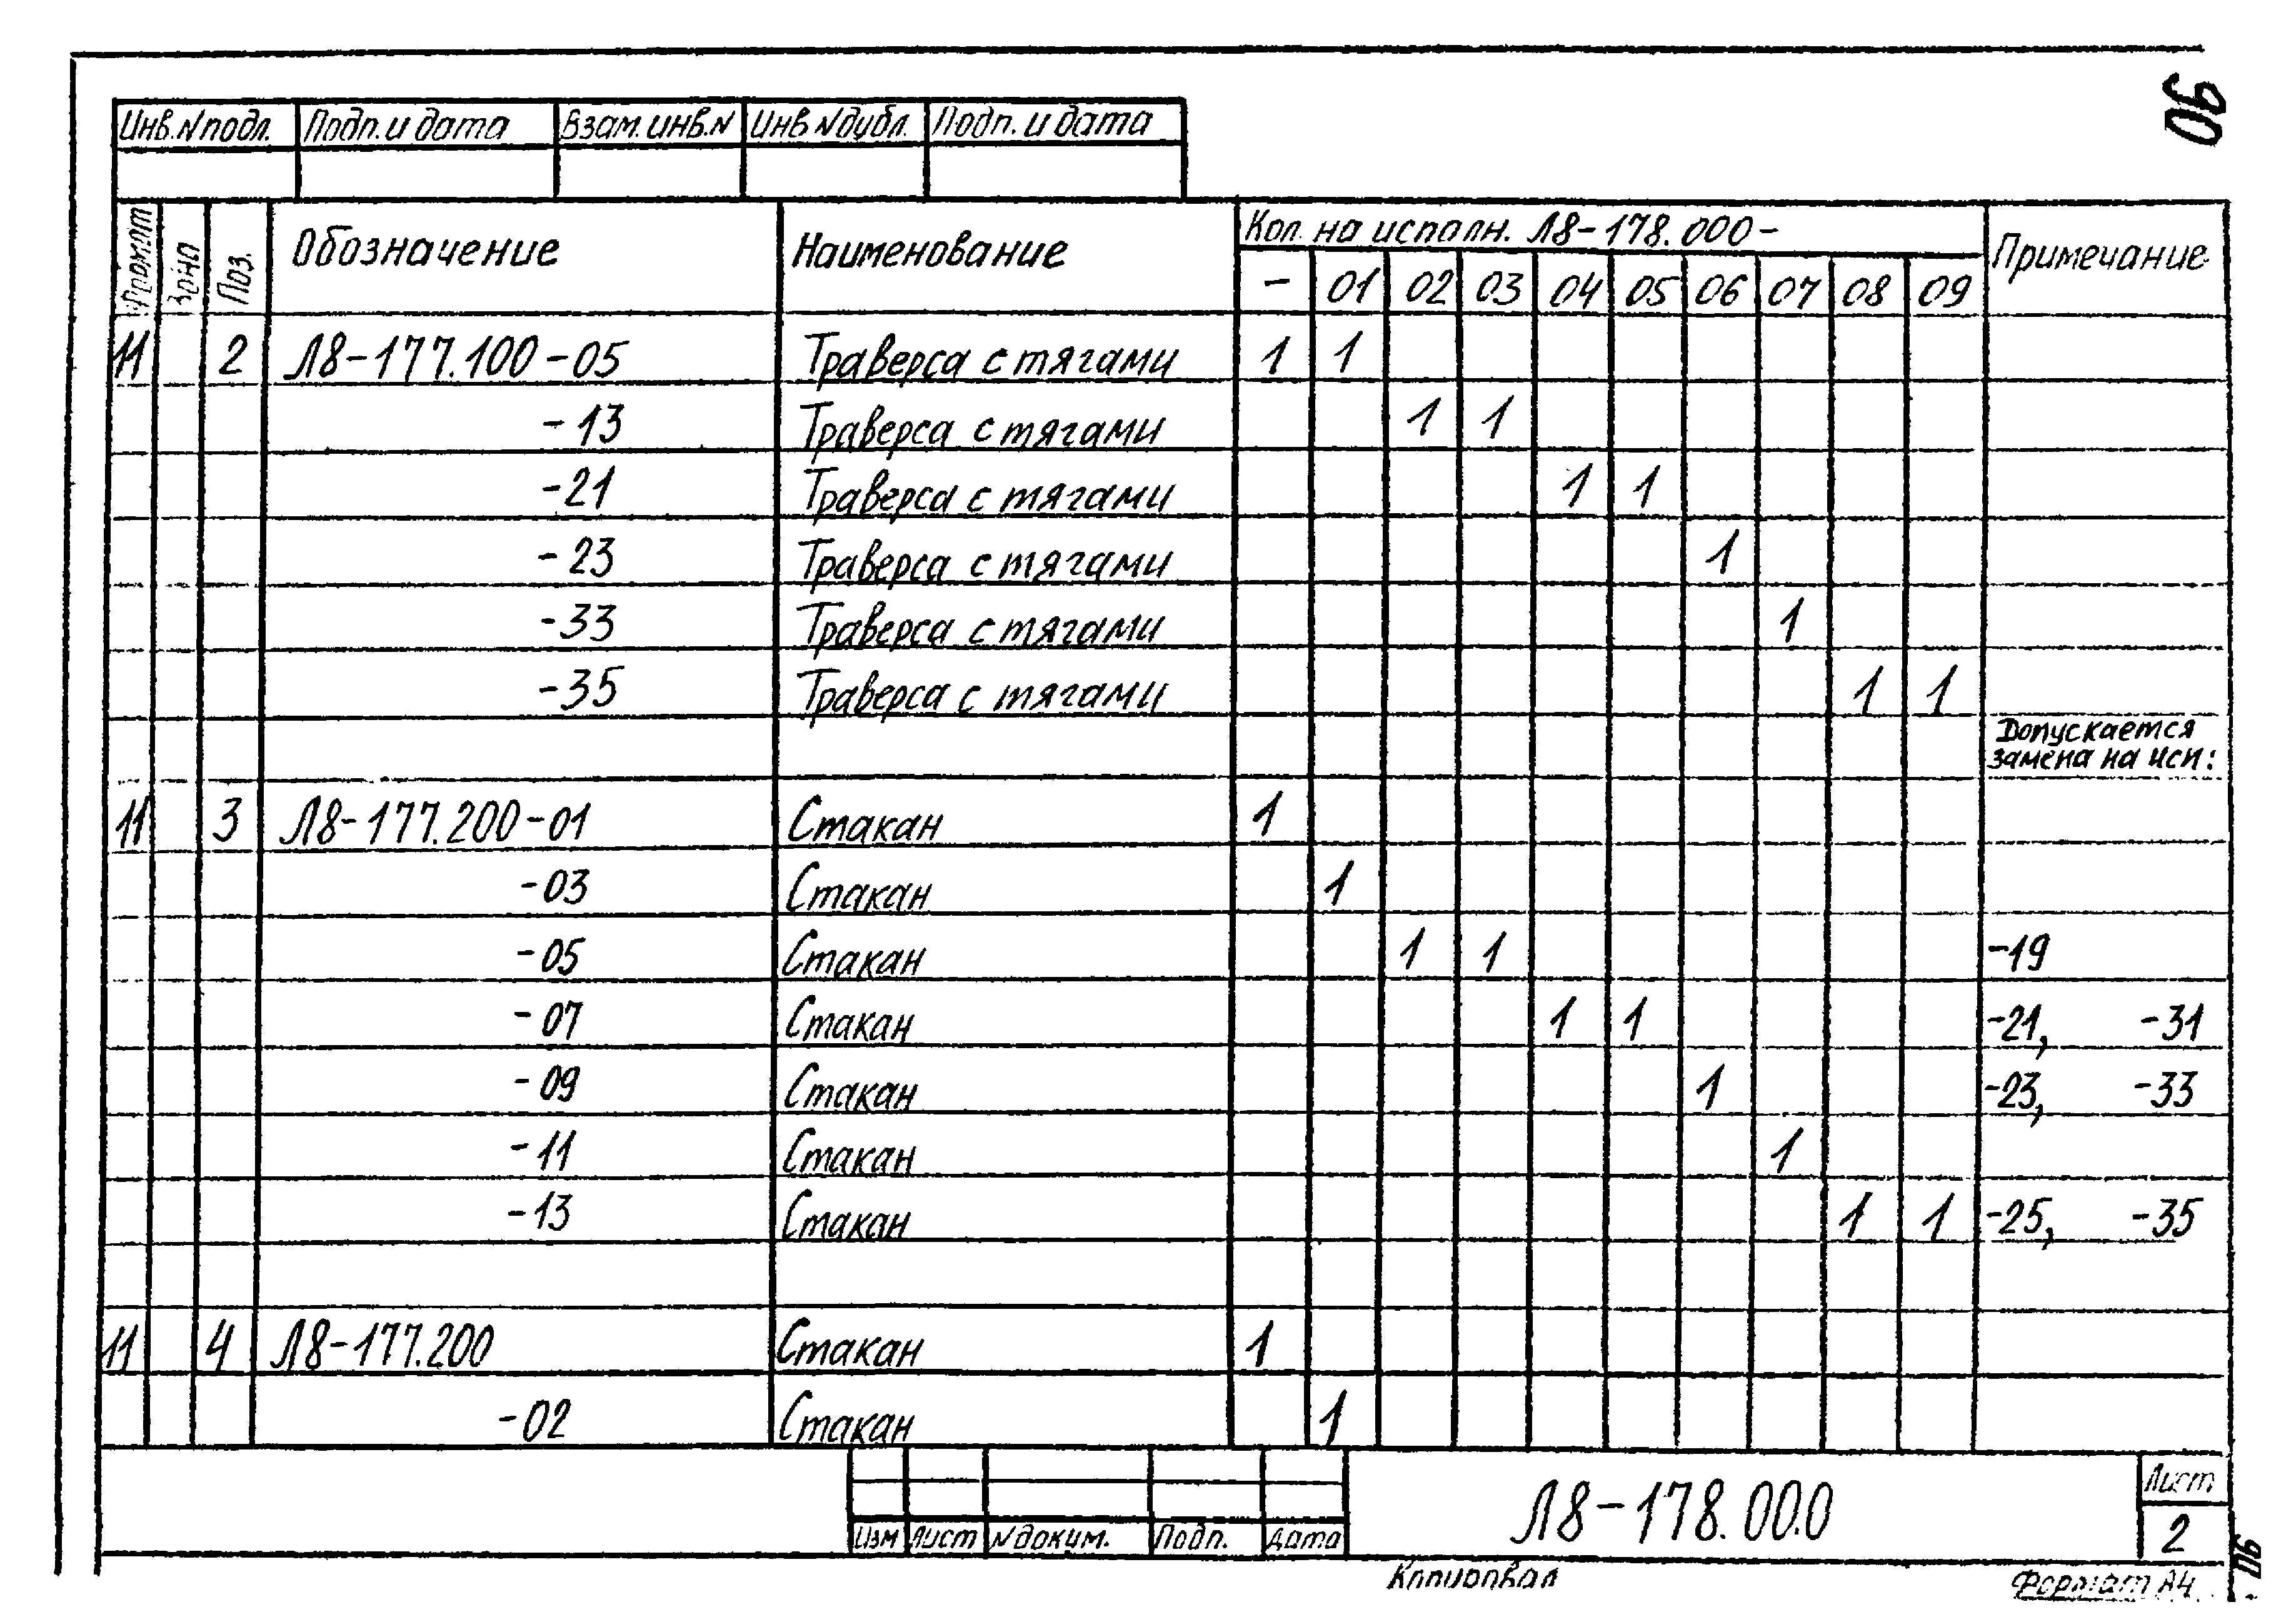 90
Инв.N подл. Подп. и дата Взам. инв. N Инв N дубл. Подп. и дата
Формат Зона Поз. Обозначение Наименование Кол. на исполн. Л8-178.000- Примечание
- 01 02 03 04 05 06 07 08 09
11 2 Л8-177.100-05 Траверса с тягами 1 1
-13 Траверса с тягами 1 1
-21 Траверса с тягами 1 1
-23 Траверса с тягами 1
-33 Траверса с тягами 1
-35 Траверса с тягами 1 1
Допускается
замена на исп:
11 3 Л8-177.200-01 Стакан 1
-03 Стакан 1
-05 Стакан 1 1 -19
-07 Стакан 1 1 -21, -31
-09 Стакан 1 -23, -33
-11 Стакан 1
-13 Стакан 1 1 -25, -35
11 4 Л8-177.200 Стакан 1
-02 Стакан 1
Изм Лист N доким. Подп. Дата
Л8-178.000
Лист
2
Копировал
Формат А4
90